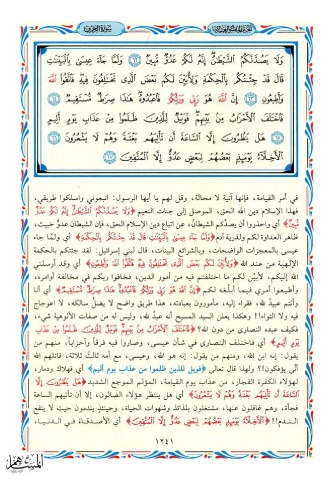 سورة الزخرف
وَلَا يَصُدَّنَّكُمُ الشَّيْطَانُ إِنَّهُ لَكُمْ عَدُوٌّ مُّبِينٌ ٦٢ وَلَمَّا جَاءَ عِيسَىٰ بِالْبَيِّنَاتِ
قَالَ قَدْ جِئْتُكُم بِالْحِكْمَةِ وَلِأُبَيِّنَ لَكُم بَعْضَ الَّذِي تَخْتَلِفُونَ فِيهِ فَاتَّقُوا اللَّهَ
وَأَطِيعُونِ ٦٣ إِنَّ اللَّهَ هُوَ رَبِّي وَرَبُّكُمْ فَاعْبُدُوهُ هَٰذَا صِرَاطٌ مُّسْتَقِيمٌ ٦٤
فَاخْتَلَفَ الْأَحْزَابُ مِن بَيْنِهِمْ فَوَيْلٌ لِّلَّذِينَ ظَلَمُوا مِنْ عَذَابِ يَوْمٍ أَلِيمٍ
٦٥ هَلْ يَنظُرُونَ إِلَّا السَّاعَةَ أَن تَأْتِيَهُم بَغْتَةً وَهُمْ لَا يَشْعُرُونَ ٦٦
الْأَخِلَّاءُ يَوْمَئِذٍ بَعْضُهُمْ لِبَعْضٍ عَدُوٌّ إِلَّا الْمُتَّقِينَ ٦٧
في أمر القيامة، فإنها آتية لا محالة، وقل لهم يا أيها الرسول: اتبعوني واسلكوا طريقي،
فهذا الإسلام دين الله الحق، الموصل إلى جنات النعيم ﴿وَلَا يَصُدَّنَّكُمُ الشَّيْطَانُ إِنَّهُ لَكُمْ عَدُوٌّ
مُّبِينٌ﴾ أي واحذروا أن يصدكم الشيطان، عن اتباع دين الإسلام الحق، فإن الشيطان عدو خبيث،
ظاهر العداوة لكم ولذرية آدم ﴿وَلَمَّا جَاءَ عِيسَىٰ بِالْبَيِّنَاتِ قَالَ قَدْ جِئْتُكُم بِالْحِكْمَةِ﴾ أي ولما جاء
عيسى بالمعجزات الواضحات، وبالشرائع البينات، قال لبني إسرائيل: لقد جئتكم بالحكمة
الإلهية من عند الله ﴿وَلِأُبَيِّنَ لَكُم بَعْضَ الَّذِي تَخْتَلِفُونَ فِيهِ فَاتَّقُوا اللَّهَ وَأَطِيعُونِ﴾ أي وقد أرسلني
الله إليكم، لأبين لكم ما اختلفتم فيه من أمور الدين، فخافوا ربكم في مخالفة أوامره،
وأطيعوا أمري فيما أبلغه لكم ﴿إِنَّ اللَّهَ هُوَ رَبِّي وَرَبُّكُمْ فَاعْبُدُوهُ هَٰذَا صِرَاطٌ مُّسْتَقِيمٌ﴾ أي أنا
وأنتم عبيد لله، فقراء إليه، مأمورون بعبادته، هذا طريق واضح لا يضل سالكه، لا اعوجاج
فيه ولا التواء!! وهكذا يعلن السيد المسيح أنه عبد لله، وليس له من صفات الألوهية شيء،
فكيف عبده النصارى من دون الله؟ ﴿فَاخْتَلَفَ الْأَحْزَابُ مِن بَيْنِهِمْ فَوَيْلٌ لِّلَّذِينَ ظَلَمُوا مِنْ عَذَابِ
يَوْمٍ أَلِيمٍ﴾ أي فاختلف النصارى في شأن عيسى، وصاروا فيه فرقاً وأحزاباً، منهم من
يقول: إنه ابن الله، ومنهم من يقول: إنه هو الله، وعيسى، مع أمه ثالث ثلاثة، قاتلهم الله
أنى يؤفكون؟! ولهذا قال تعالى ﴿فويل للذين ظلموا من عذاب يوم أليم﴾ أي فهلاك ودمار،
لهؤلاء الكفرة الفجار، من عذاب يوم القيامة، المؤلم الموجع الشديد ﴿هَلْ يَنظُرُونَ إِلَّا
السَّاعَةَ أَن تَأْتِيَهُم بَغْتَةً وَهُمْ لَا يَشْعُرُونَ﴾ أي هل ينتظر هؤلاء الضالون، إلا أن تأتيهم الساعة
فجأة، وهم غافلون عنها، مشتغلون بلذائذ وشهوات الحياة، وحينئذ يندمون حيث لا ينفع
الندم!! ﴿الْأَخِلَّاءُ يَوْمَئِذٍ بَعْضُهُمْ لِبَعْضٍ عَدُوٌّ إِلَّا الْمُتَّقِينَ﴾ أي الأصدقاء في الدنيا،
١٢٤١